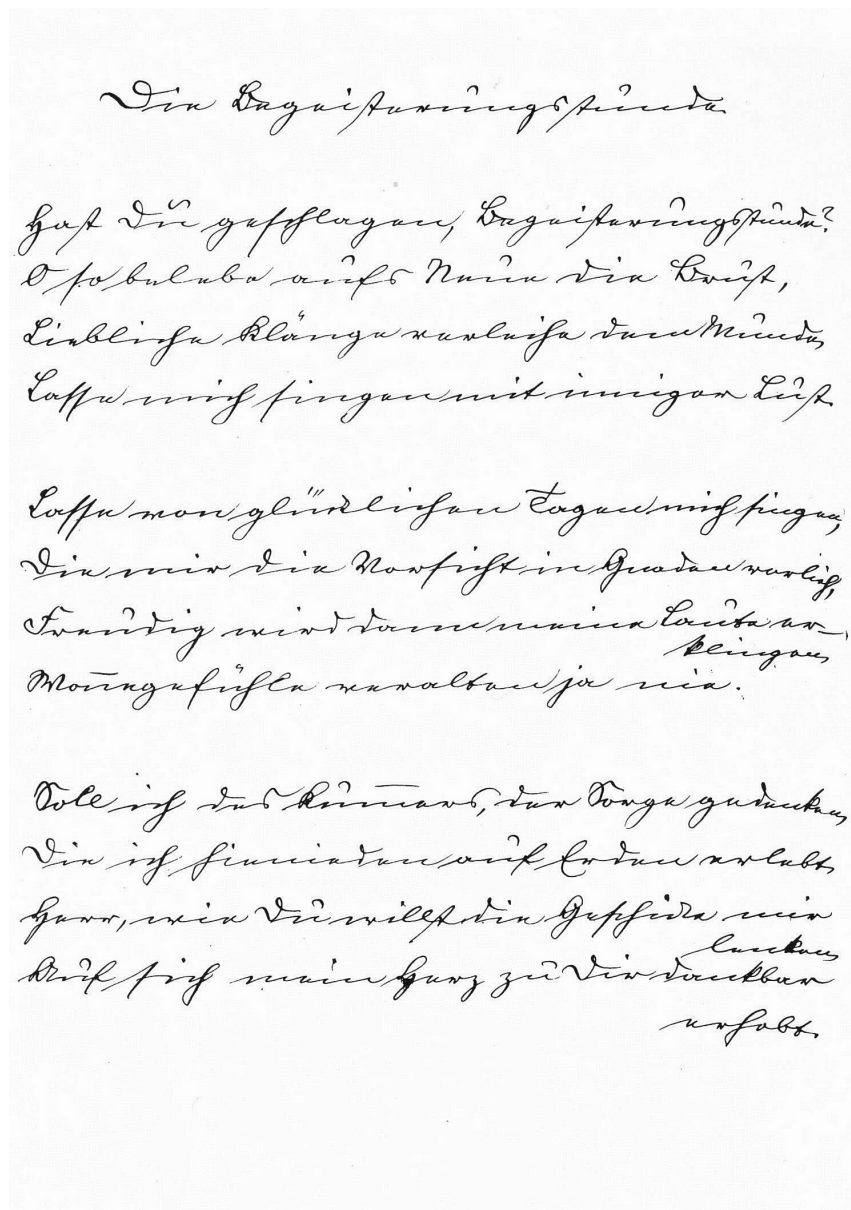 Die Begeisterungsstunde
Hast Du geschlagen, Begeisterungsstunde?
O so belebe aufs Neue die Brust,
Liebliche Klänge verleihe dem Munde,
Lasse mich singen mit inniger Lust.
Lasse von glücklichen Tagen mich singen,
Die mir die Vorsicht in Gnaden verlieh,
Freudig wird dann meine Laute er-
klingen
Wonnegefühle veralten ja nie.
Soll ich des Kummers, der Sorge gedenken,
Die ich hienieden auf Erden erlebt
Herr, wie Du willst die Geschicke mir
lenken
Auf sich mein Herz zu Dir dankbar
erhebt.